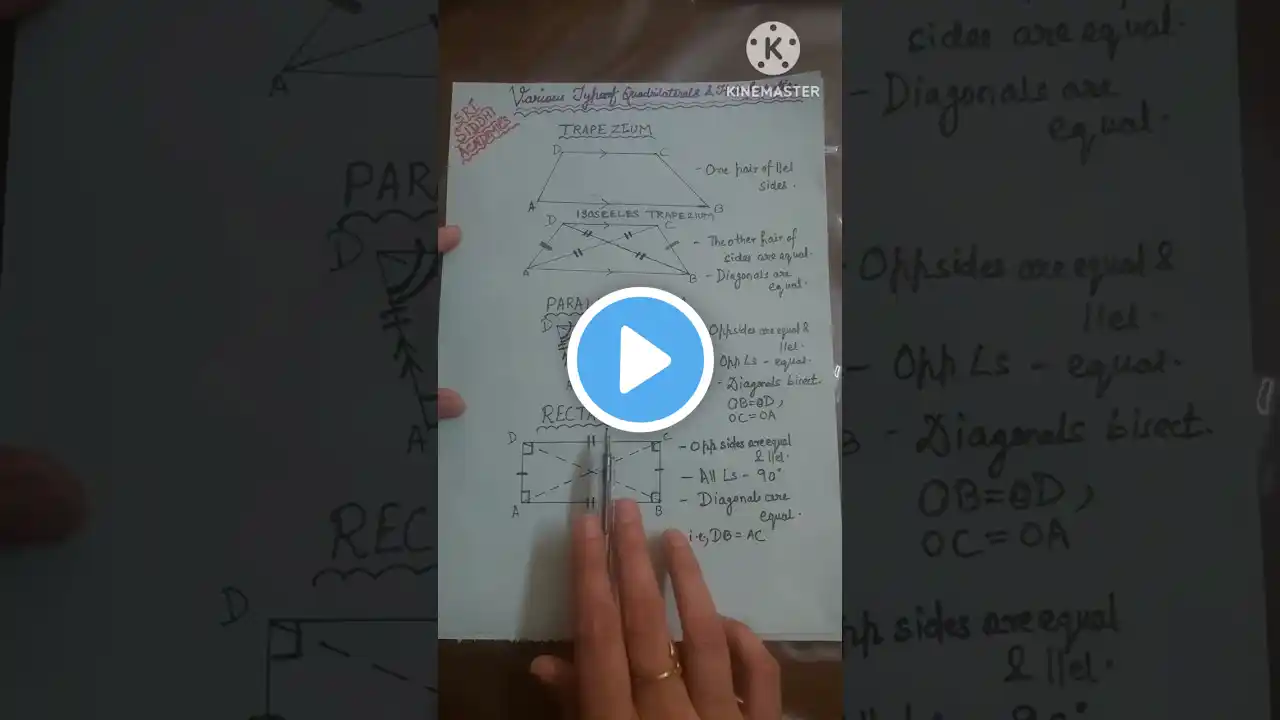 KINEMASTER
Various Type of Quadrilaterals &
SRI
SIDDHI
ACADEMICS
TRAPEZIUM
D C
- One pair of llel
sides.
A B
ISOSEELES TRAPEZIUM
D C
- The other pair of
sides are equal.
- Diagonals are
equal.
A B
PARAL
D
Opp sides are equal &
llel.
Opp Ls - equal.
- Diagonals bisect.
OB=OD,
OC=OA
A
RECTA
D C
- Opp sides are equal
& llel.
- All Ls - 90°
- Diagonal are
equal.
A B
i.e, DB = AC
sides are equal.
- Diagonals are
equal.
A
PAR
D
Opp sides are equal &
llel.
- Opp Ls - equal.
B - Diagonals bisect.
OB=OD,
OC=OA
A
REC
D
pp sides are equal
& llel.